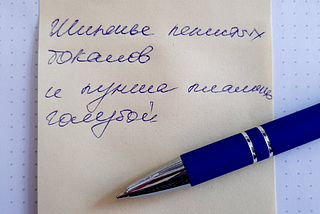 Шипенье пенистых
бокалов
и пунша пламень
голубой